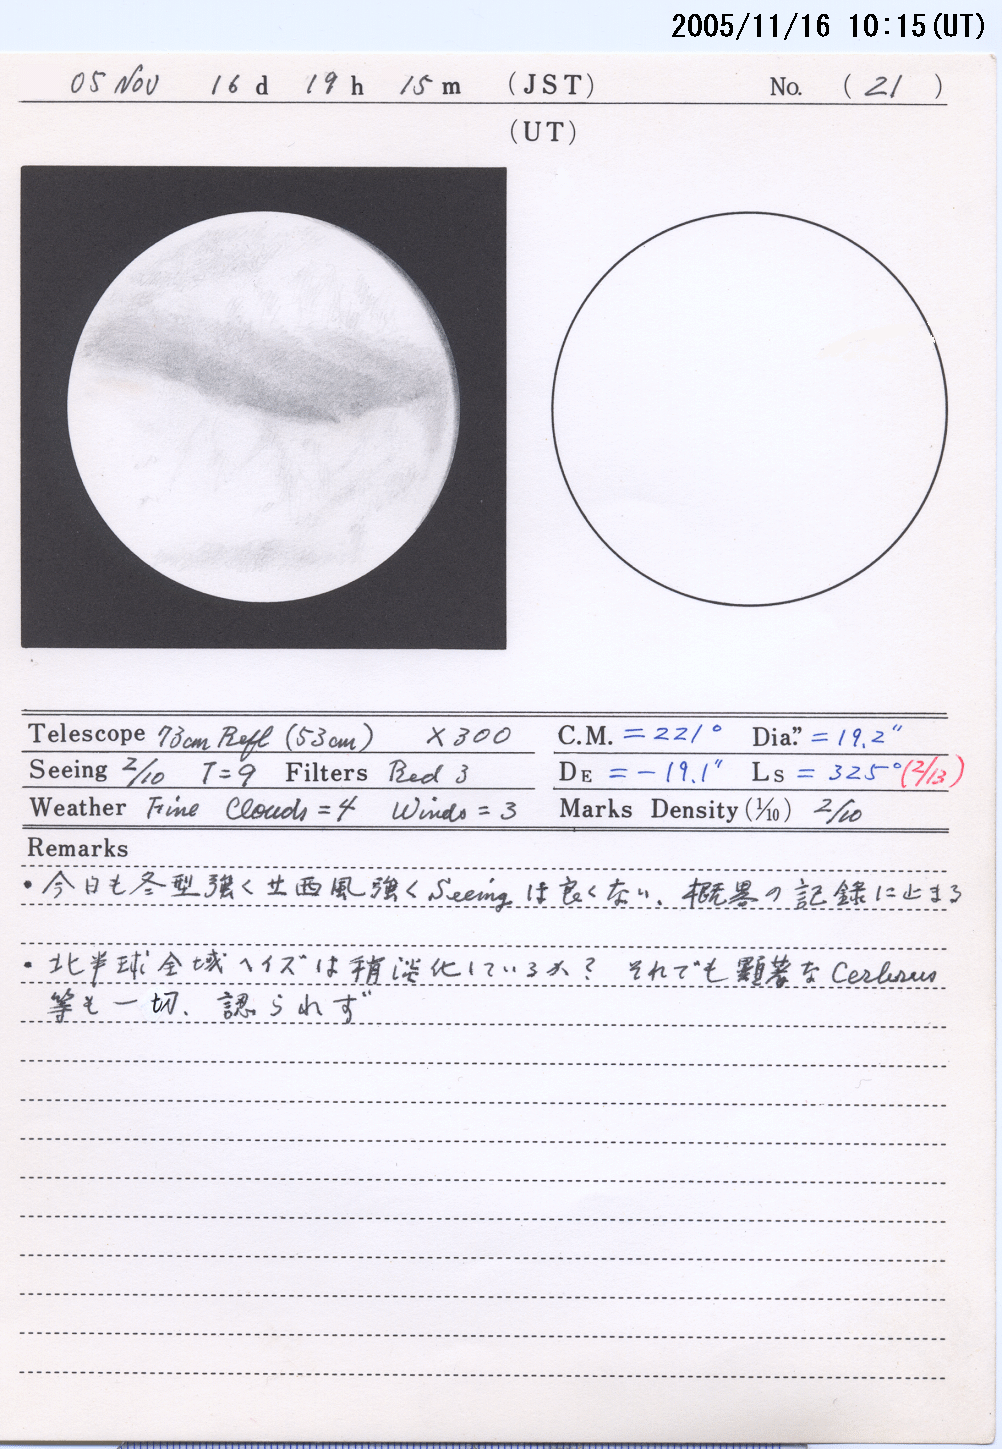 2005/11/16 10:15(UT)
05 Nov 16 d 19 h 15 m (JST) No. (21)
(UT)
Telescope 73cm Refl (53cm) ×300 C.M. = 221° Dia." = 19.2"
Seeing 2/10 T=9 Filters Red 3 DE = -19.1° Ls = 325° (2/13)
Weather Fine Clouds = 4 Winds = 3 Marks Density (1/10) 2/10
Remarks
・今日も冬型強く 西風強く Seeing は良くない、概略の記録に止まる
・北半球全域ヘイズは稍淡化しているか? それでも顕著な Cerberus
等も一切、認られず